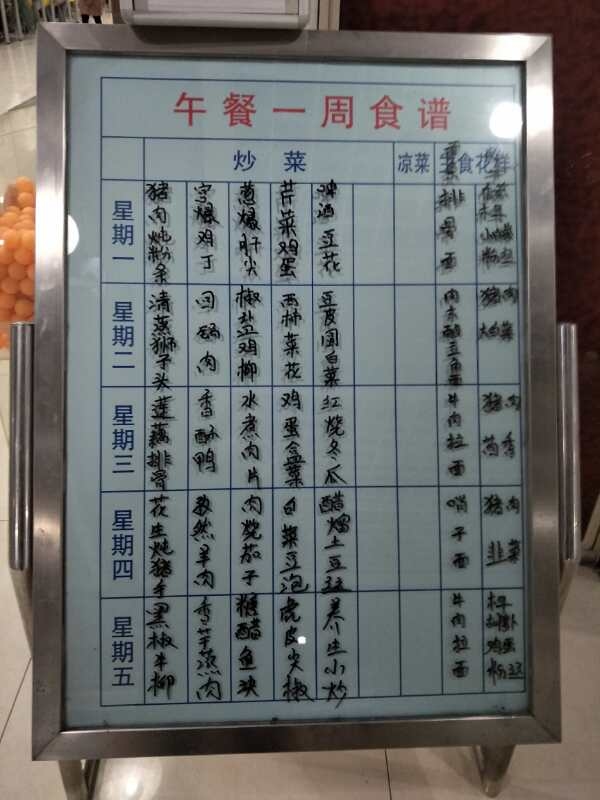 午餐一周食谱
炒菜 凉菜 主食花样
星期一
猪肉炖粉条
宫爆鸡丁
葱爆肝尖
芹菜鸡蛋
啤酒豆花
排骨面
星期二
清蒸狮子头
回锅肉
椒盐鸡柳
西柿菜花
豆皮园白菜
肉末酸豆角面
猪肉
大白菜
星期三
莲藕排骨
香酥鸭
水煮肉片
鸡蛋盒菜
红烧冬瓜
牛肉拉面
猪肉
茴香
星期四
花生炖猪手
孜然羊肉
肉烧茄子
白菜豆泡
醋熘土豆丝
哨子面
猪肉
韭菜
星期五
黑椒牛柳
香芋蒸肉
糖醋鱼块
虎皮尖椒
养生小炒
牛肉拉面
鸡蛋
粉丝